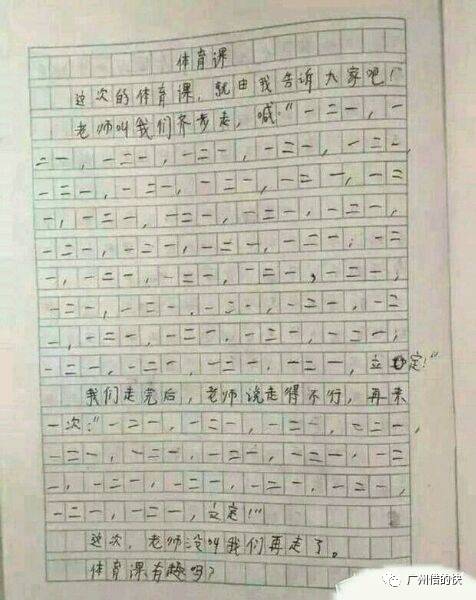 体育课
这次的体育课，就由我告诉大家吧！
老师叫我们齐步走，喊："一二一，一
二一，一二一，一二一，一二一，一二一，
一二一，一二一，一二一，一二一，一二
一，一二一，一二一，一二一，一二一，
一二一，一二一，一二一，一二一，一二
一，一二一，一二一，一二一，一二一，
一二一，一二一，一二一，一二一，一二
一，一二一，一二一，一二一，一二一，
一二一，一二一，一二一，一二一，立定！"
我们走完后，老师说走得不行，再来
一次："一二一，一二一，一二一，一二一，
一二一，一二一，一二一，一二一，一二
一，一二一，一二一，一二一，一二一，
一二一，一二一，立定！"
这次，老师没叫我们再走了。
体育课有趣吗？
广州借的快